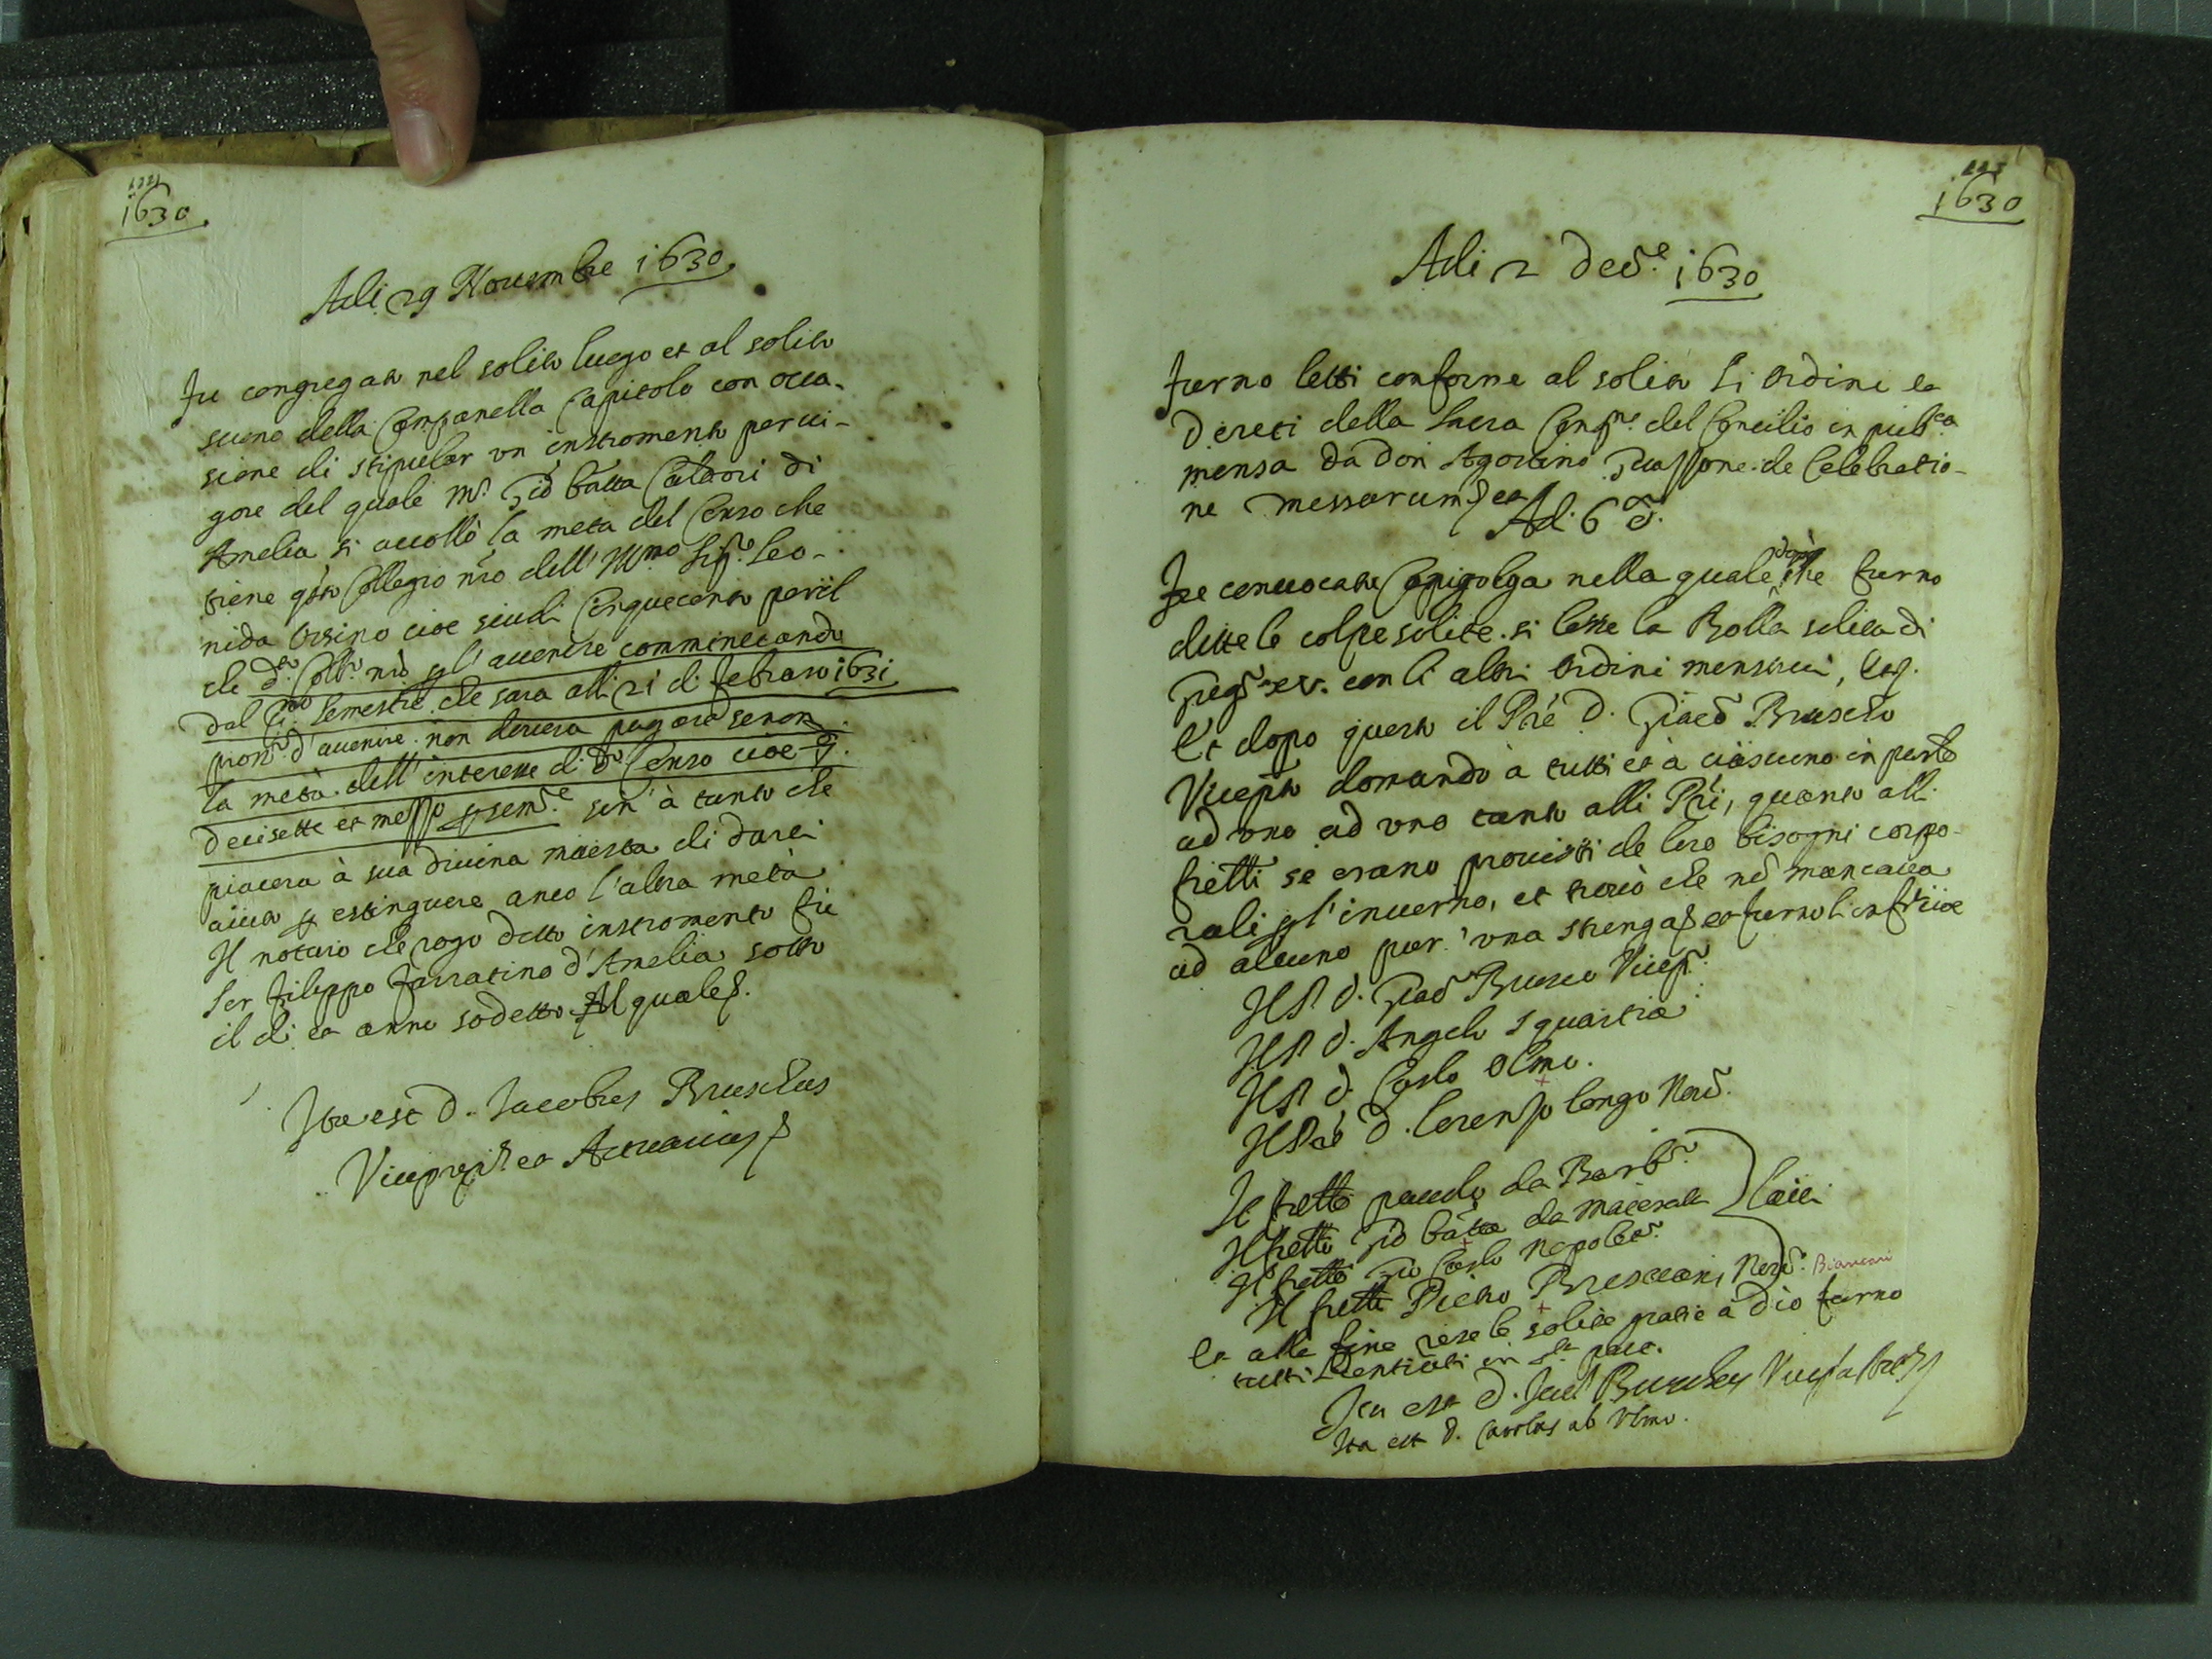 1630
Adi 29 Novembre 1630
Fu congregato nel solito luogo et al solito
suono della Campanella Capitolo con occa-
sione di stipular un instromento per vi-
gore del quale Mr. Gio batta Caldori di
Amelia si accollò la metà del Censo che
tiene qsto Collegio nro dell' Illmo Sigr. Leo-
nida Orsino cioè scudi Cinquecento per il
che do. Collo. nro p l'avenire cominciando
dal po. semestre che sarà alli 21 di febraro 1631
prossº. d'avenire non deverà pagare se non
la metà dell' interesse di do. Censo cioè
decisette et mezzo p semre. sin' à tanto che
piacerà à sua divina maestà di darci
aiuto p estinguere anco l'altra metà
Il notaro che rogò detto instromento fu
Ser filippo farratino d'Amelia sotto
il dì et anno sodetto Al quale
Ita est D. Jacobus Bruschus
Viceprepts et Actuarius
1630
Adi 2 Decre. 1630
furno letti conforme al solito li Ordini et
Decreti della Sacra Congne. del Concilio in pubca
mensa da Don Agostino de Celebratio-
ne Messarum et
Adi 6 d.
Fu convocata Congrega nella quale dopo che furno
dette le colpe solite si lesse la Bolla solita di
Gregº. xv. con li altri Ordini mensuii,
Et dopo questo il Pre D. Giacº Bruscho
Vicepto domandò à tutti et à ciascuno in parlo
ad uno ad uno tanto alli Pri, quanto alli
fretti se erano provisti de loro bisogni corpo-
rali p l'inverno, et trovò che nō mancava
ad alcuno pur' una strenga et furno l'infrti cioe
Il P. D. Giacº Brusco Vicepº.
Il P. D. Angelo Squartia
Il P. D. Carlo Olmo.
Il Pre D. Lorenzo longo Novo.
Il fretto paulo da Barbº.
Il fretto Gio batta da Macerata
Laici
Il fretto Gio Carlo Napoleº.
Il fretto Pietro Bresciani Novo. Bianconi
Et alla fine rese le solite gratie à Dio furno
tutti licentiati in sta pace.
Ita est D. Jacs Bruschus
Ita est D. Carolus ab Ulmo.